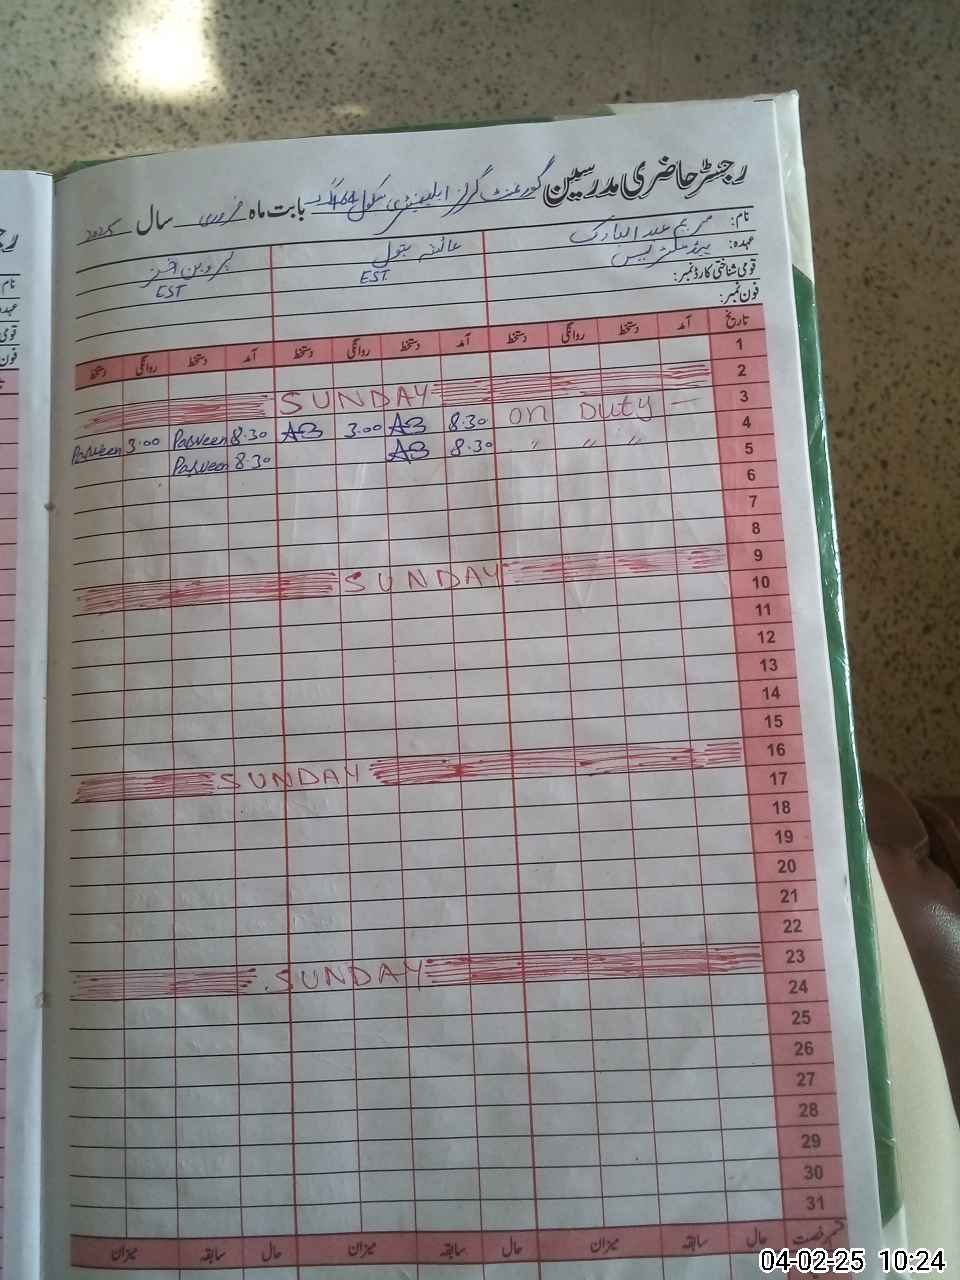 رجسٹر حاضری مدرسین گورنمنٹ گرلز ایلیمنٹری سکول بابت ماہ فروری سال 2025
نام: مریم عبد المبارک عائشہ بتول پروین اختر
عہدہ: ہیڈ مسٹریس EST EST
قومی شناختی کارڈ نمبر:
فون نمبر:
تاریخ آمد دستخط روانگی دستخط آمد دستخط روانگی دستخط آمد دستخط روانگی دستخط
1
2 SUNDAY
3 on Duty — 8.30 AB 3.00 AB 8.30 Parveen 3.00 Parveen
4 " " " 8.30 AB 8.30 Parveen
5
6
7
8
9 SUNDAY
10
11
12
13
14
15
16 SUNDAY
17
18
19
20
21
22
23 SUNDAY
24
25
26
27
28
29
30
31
حال سابقہ میزان حال سابقہ میزان حال سابقہ میزان
04-02-25 10:24